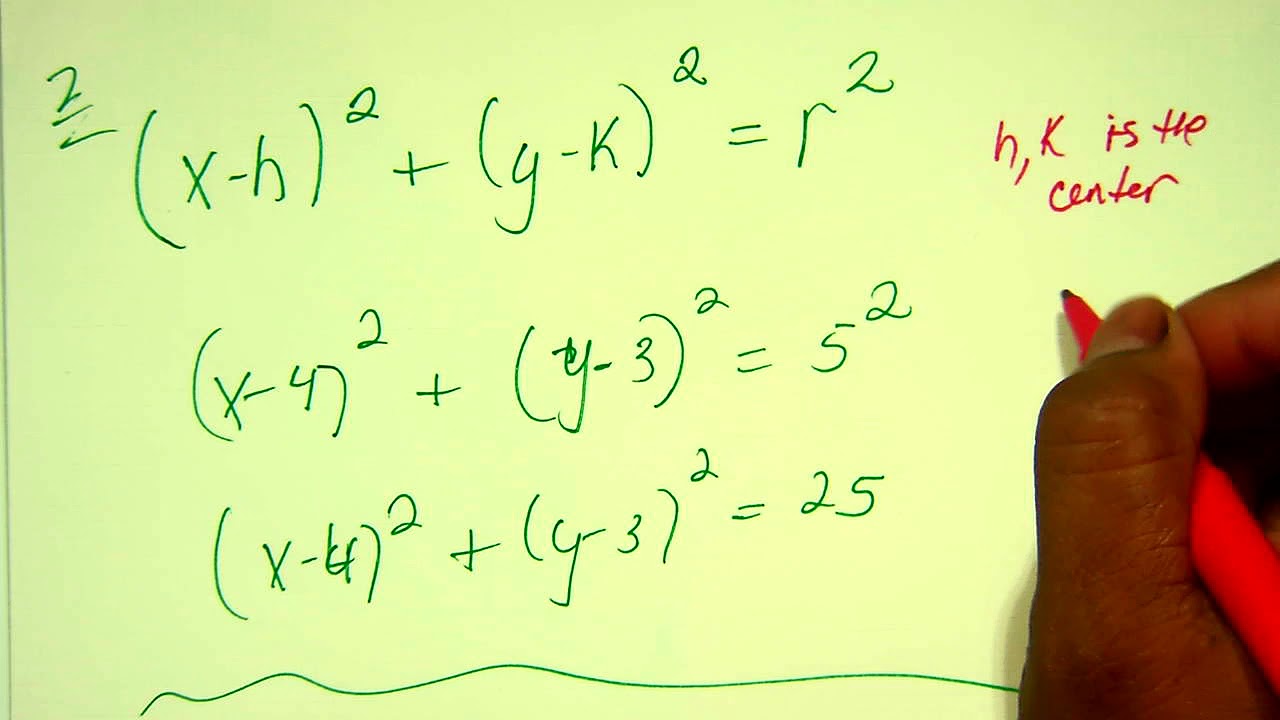 2 (x-h)² + (y-k)² = r²
h, k is the
center
(x-4)² + (y-3)² = 5²
(x-4)² + (y-3)² = 25